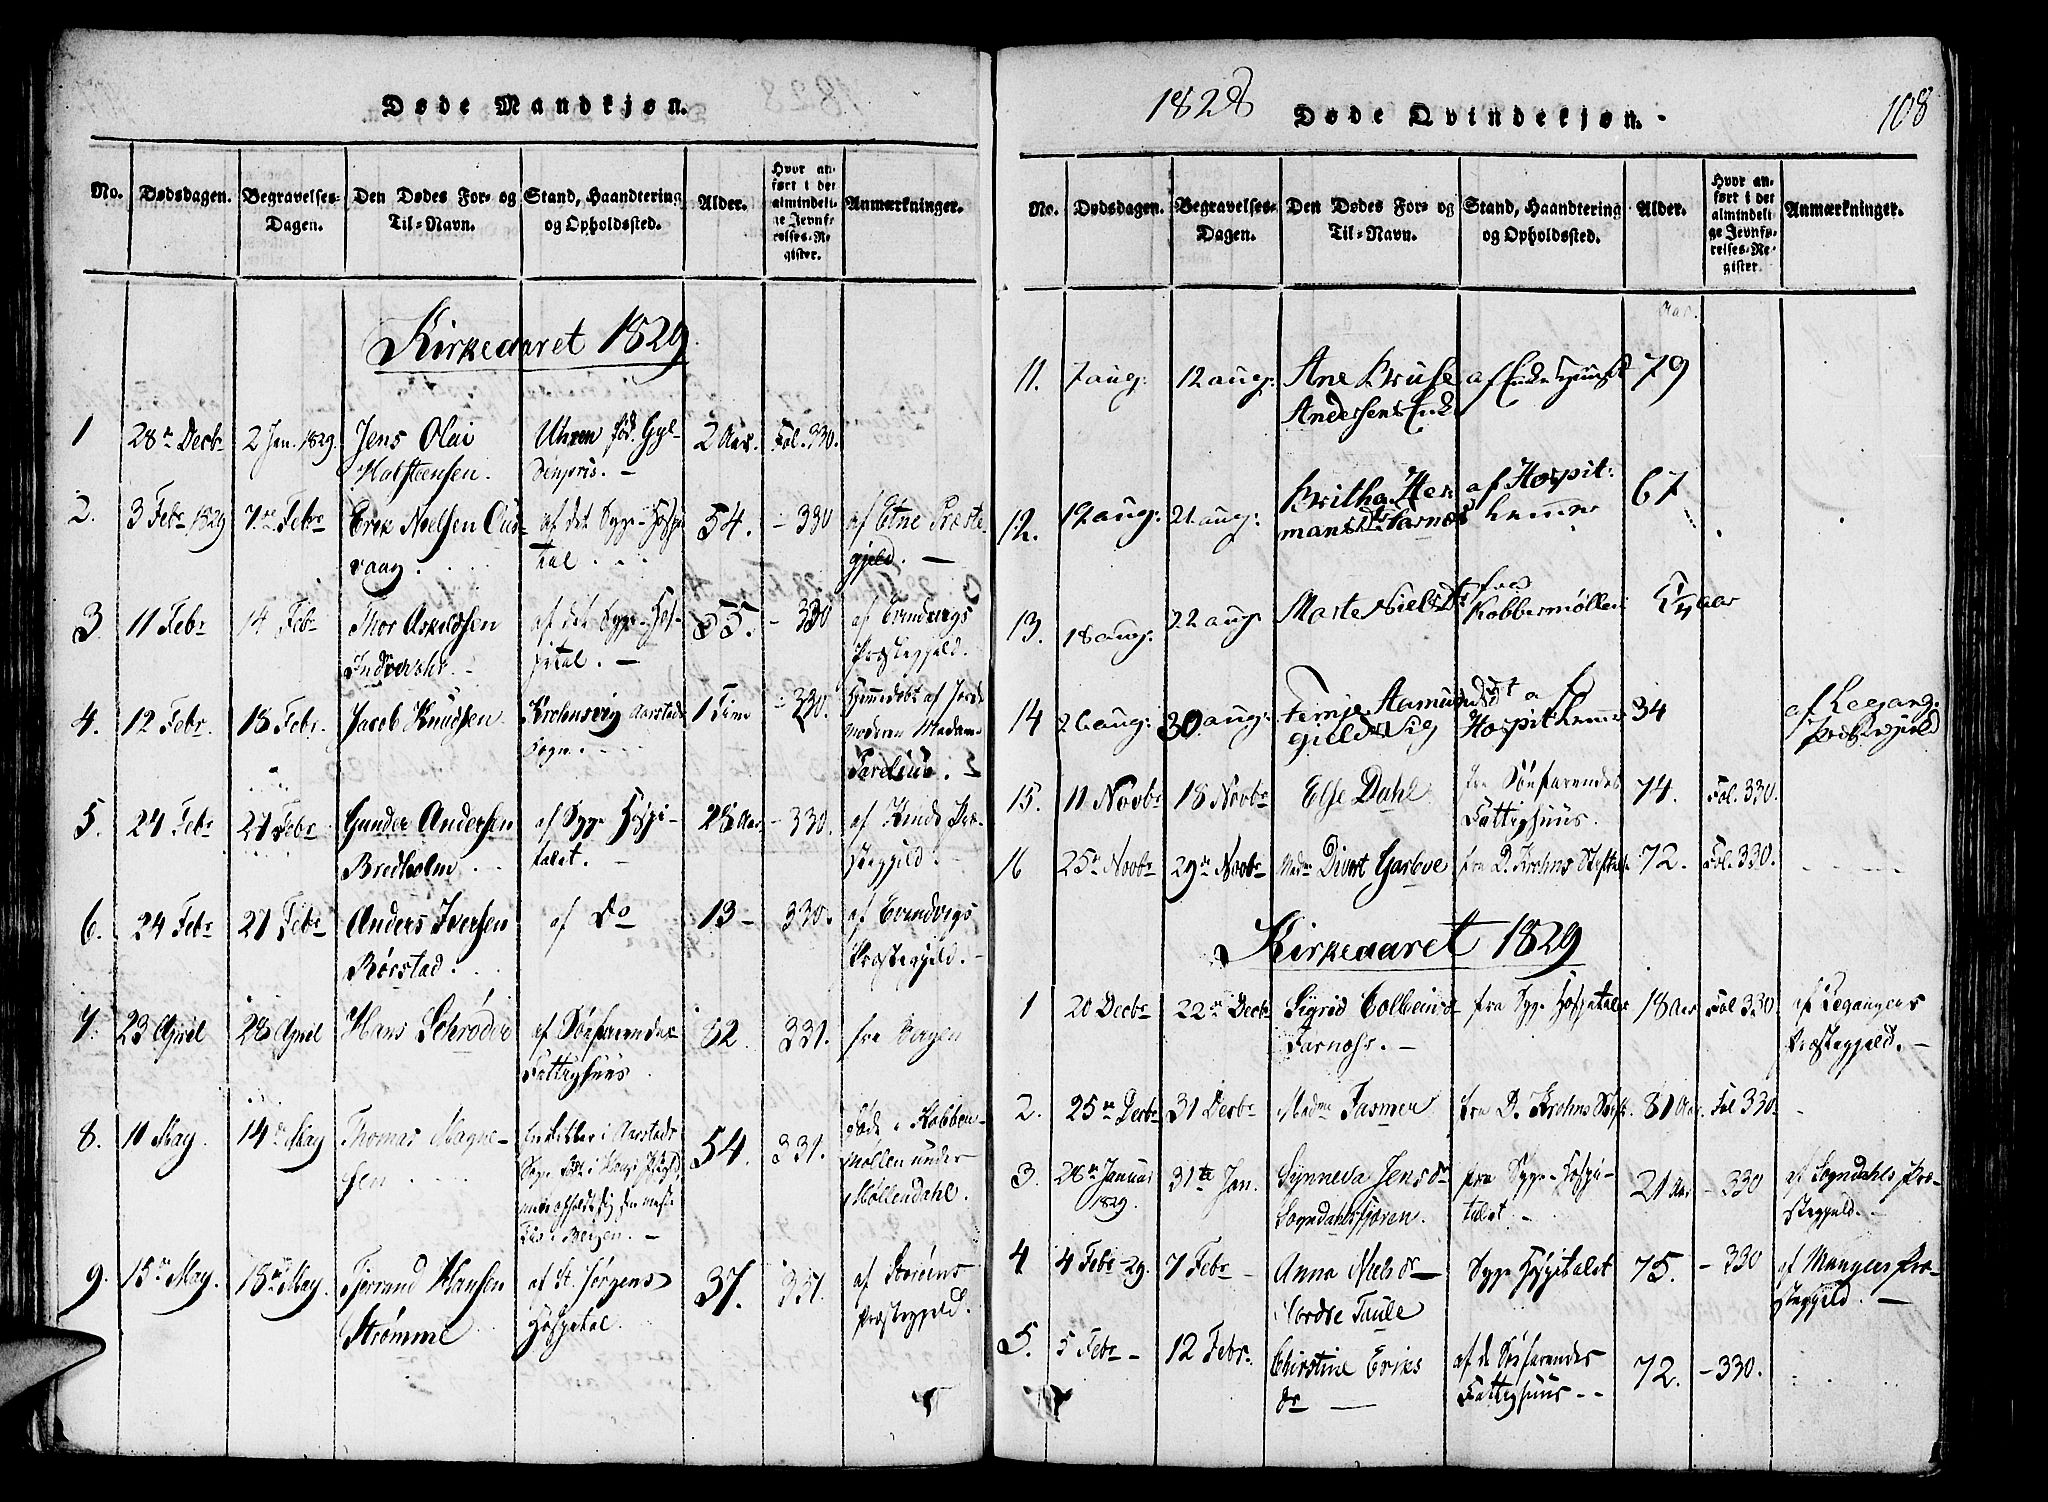 Døde Mandkjøn.
No. Dødsdagen. Begravelses-Dagen. Den Dødes For- og Til-Navn. Stand, Haandtering og Opholdssted. Alder. Hvor anført i det almindelige Jevnførelses-Register. Anmærkninger.
Kirkeaaret 1829.
1 28de Decbr 2 Jan. 1829. Jens Olai Halsteensen. Uhren fød. Gyldenpris. 2 Aar. Fol. 330.
2. 3 Febr 1829 7de Febr Erik Noelsen af det Syge-Hospital 54. - 330 af Etne Præstegjeld.
3 11 Febr 14 Febr Thor Askildsen af det Syge-Hospital. 55. - 330 af Evindvigs Præstegjeld.
4. 12 Febr. 18 Febr. Jacob Knudsen Krohnsvig Aarstads Sogn. 1 Time - 330. Hjemmedøbt af Jordemoderen Madame
5. 24 Febr 27 Febr Gunder Andersen Bredholm af Syge Hospitalet. 28 Aar - 330. af Kinds Præstegjeld.
6. 24 Febr 27 Febr Anders Iversen Rørstad. af Do 13 - 330. af Evindvigs Præstegjeld.
7. 23 April 28 April Hans Schrøder af Søefarendes Fattighuus 82. 331. fra
8. 11 May. 14de May Thomas Magnesen i Aarstads 54. 331. døde i Kobbermøllen under Møllendahl.
9. 15de May. 18de May. Tjerrand Hansen Strømme af St. Jørgens Hospital. 37. 331. af Storøens Præstegjeld.
1828 Døde Qvindekjøn. 108
No. Dødsdagen. Begravelses-Dagen. Den Dødes For- og Til-Navn. Stand, Haandtering og Opholdssted. Alder. Hvor anført i det almindelige Jevnførelses-Register. Anmærkninger.
Aar.
11. 7 aug: 12 aug: Ane Kruse Andersens Enke af Enke Huuset 79
12. 17 aug: 21 aug: Britha Hermansdr Farnæs af Hospit: lemmer 67
13. 18 aug: 22 aug Marte Nielsdr fra Kobbermøllen aar
14 26 aug: 30 aug: Aamunds Hospit: lemmer 34 af Legang: Præstegield
15. 11 Novbr 18 Novbr Else Dahl fra Søefarendes Fattighuus. 74. Fol. 330.
16 25de Novbr 29de Novbr Madm Divert Garbve fra D. Krohns Stiftelse 72. Fol. 330.
Kirkeaaret 1829
1 20 Decbr 22de Decbr Sigrid Colbeinsdr Farnæss. fra Syge Hospitalet 18 Aar Fol 330 af Leganges Præstegjeld.
2. 25de Decbr 31 Decbr Madm Fasmer fra D. Krohns Stift. 81 Aar. Fol 330
3. 26de Januar 1829. 31te Jan. Synneva Jensdr Sogndahlsfjæren. fra Syge-Hospitalet 21 Aar - 330 af Sogndahls Præstegjeld.
4 4 Febr -29. 7 Febr Anna Nielsdr Nordre Taule Syge Hospitalet 75. - 330 af Mangers Præstegjeld.
5. 5 Febr 12 Febr. Christine Eriksdr af de Søefarendes Fattighuus 72. - 330.